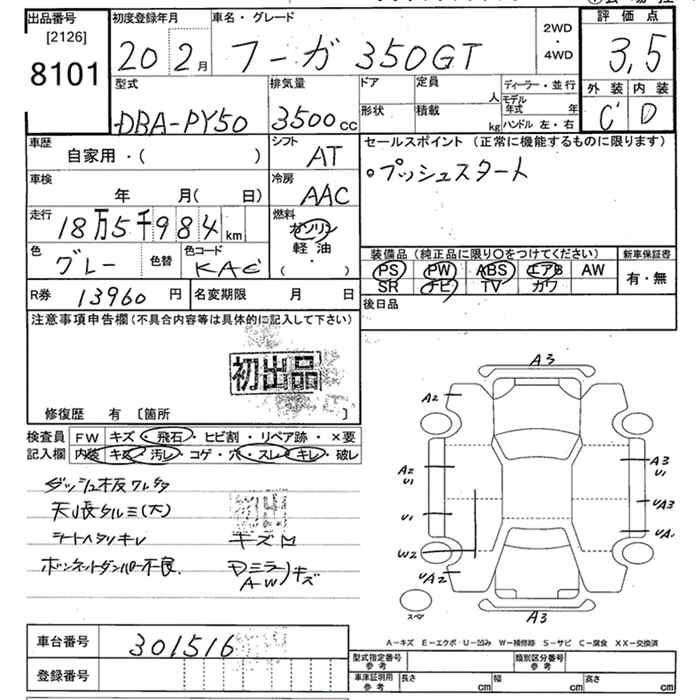 出品番号
[2126]
8101
初度登録年月
20年2月
車名・グレード
フーガ 350GT
2WD
・
4WD
評価点
3,5
外装 内装
C D
型式
DBA-PY50
排気量
3500cc
ドア
形状
定員 人
積載 kg
ディーラー・並行
モデル年式 年
ハンドル 左・右
車歴
自家用・( )
シフト
AT
セールスポイント (正常に機能するものに限ります)
○プッシュスタート
車検
年 月( 日)
冷房
AAC
走行
18万5千984km
燃料
ガソリン
軽油
( ・ )
色
グレー
色替
色コード
KAC
装備品 (純品に限り○をつけてください)
PS PW ABS エアB AW
SR ナビ TV カワ
新車保証書
有・無
R券 13960円
名変期限 月 日
後日品
注意事項申告欄(不具合内容等は具体的に記入して下さい)
初出品
修復歴 有 〔箇所 〕
検査員
記入欄
FW キズ・飛石・ヒビ割・リペア跡・×要
内装 キズ・汚レ・コゲ・穴・スレ・キレ・破レ
ダッシュ板ワレ
天張タルミ(大)
シートヘタリキレ
キズM
ボンネットダンパー不良
DミラーキズAW
A3
A2
A2
U1
A3
U1
U1
UA3
W2
UA2
A3
スペア
A-キズ E-エクボ・U-凹み W-補修跡 S-サビ C-腐食 XX-交換済
車台番号 301516
登録番号
型式指定番号
参考
類別区分番号
参考
車庫証明用
参考
長さ cm 幅 cm 高さ cm